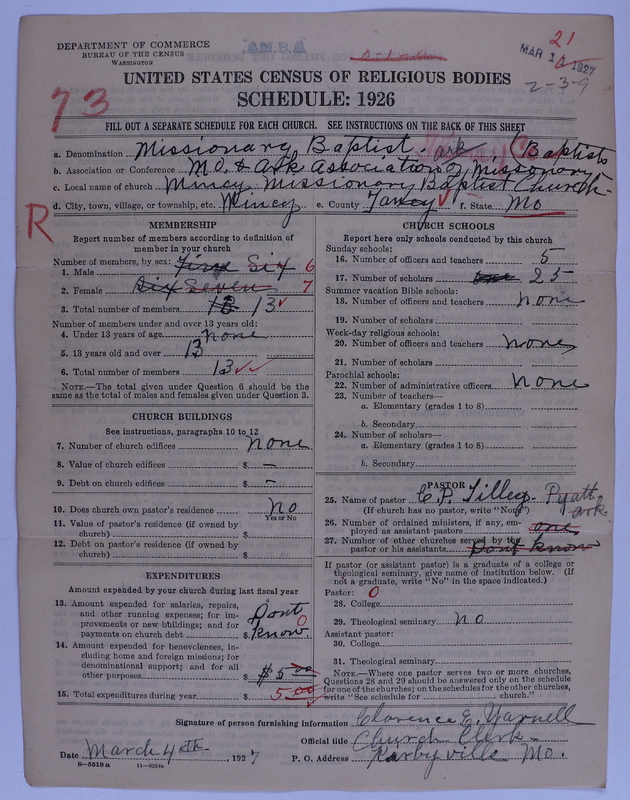 DEPARTMENT OF COMMERCE
BUREAU OF THE CENSUS
WASHINGTON
21
MAR 10 1927
2-3-9
UNITED STATES CENSUS OF RELIGIOUS BODIES
SCHEDULE: 1926
73
FILL OUT A SEPARATE SCHEDULE FOR EACH CHURCH. SEE INSTRUCTIONS ON THE BACK OF THIS SHEET
a. Denomination Missionary Baptist ark (Baptists
b. Association or Conference MO. & Ark Association of Missionary
c. Local name of church Mincy Missionary Baptist Church
d. City, town, village, or township, etc. Mincy e. County Taney f. State Mo
R
MEMBERSHIP
Report number of members according to definition of
member in your church
Number of members, by sex:
1. Male Five Six 6
2. Female Six Seven 7
3. Total number of members 13 13
Number of members under and over 13 years old:
4. Under 13 years of age none
5. 13 years old and over 13
6. Total number of members 13
NOTE.—The total given under Question 6 should be the
same as the total of males and females given under Question 3.
CHURCH BUILDINGS
See instructions, paragraphs 10 to 12
7. Number of church edifices none
8. Value of church edifices $ —
9. Debt on church edifices $ —
10. Does church own pastor's residence No
Yes or No
11. Value of pastor's residence (if owned by
church) $
12. Debt on pastor's residence (if owned by
church) $
EXPENDITURES
Amount expended by your church during last fiscal year
13. Amount expended for salaries, repairs,
and other running expenses; for im-
provements or new buildings; and for
payments on church debt $ Dont know 0
14. Amount expended for benevolences, in-
cluding home and foreign missions; for
denominational support; and for all
other purposes $ $5 00
15. Total expenditures during year $ 5.00
CHURCH SCHOOLS
Report here only schools conducted by this church
Sunday schools:
16. Number of officers and teachers 5
17. Number of scholars 25
Summer vacation Bible schools:
18. Number of officers and teachers none
19. Number of scholars
Week-day religious schools:
20. Number of officers and teachers none
21. Number of scholars
Parochial schools:
22. Number of administrative officers none
23. Number of teachers—
a. Elementary (grades 1 to 8)
b. Secondary
24. Number of scholars—
a. Elementary (grades 1 to 8)
b. Secondary
PASTOR
25. Name of pastor C. P. Tilley - Pyatt ark.
(If church has no pastor, write "None")
26. Number of ordained ministers, if any, em-
ployed as assistant pastors one
27. Number of other churches served by the
pastor or his assistants Dont know
If pastor (or assistant pastor) is a graduate of a college or
theological seminary, give name of institution below. (If
not a graduate, write "No" in the space indicated.)
Pastor: 0
28. College
29. Theological seminary no
Assistant pastor:
30. College
31. Theological seminary
NOTE.—Where one pastor serves two or more churches,
Questions 28 and 29 should be answered only on the schedule
for one of the churches; on the schedules for the other churches,
write "See schedule for church."
Signature of person furnishing information Clarence E. Yarnell
Official title Church Clerk
Date March 4th, 1927 P. O. Address Kirbyville Mo.
8-5518a 11-9054a